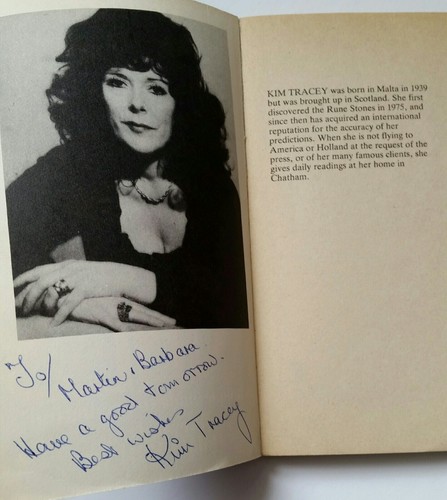 To/ Martin & Barbara.
Have a good tomorrow.
Best Wishes
Kim Tracey
KIM TRACEY was born in Malta in 1939
but was brought up in Scotland. She first
discovered the Rune Stones in 1975, and
since then has acquired an international
reputation for the accuracy of her
predictions. When she is not flying to
America or Holland at the request of the
press, or of her many famous clients, she
gives daily readings at her home in
Chatham.